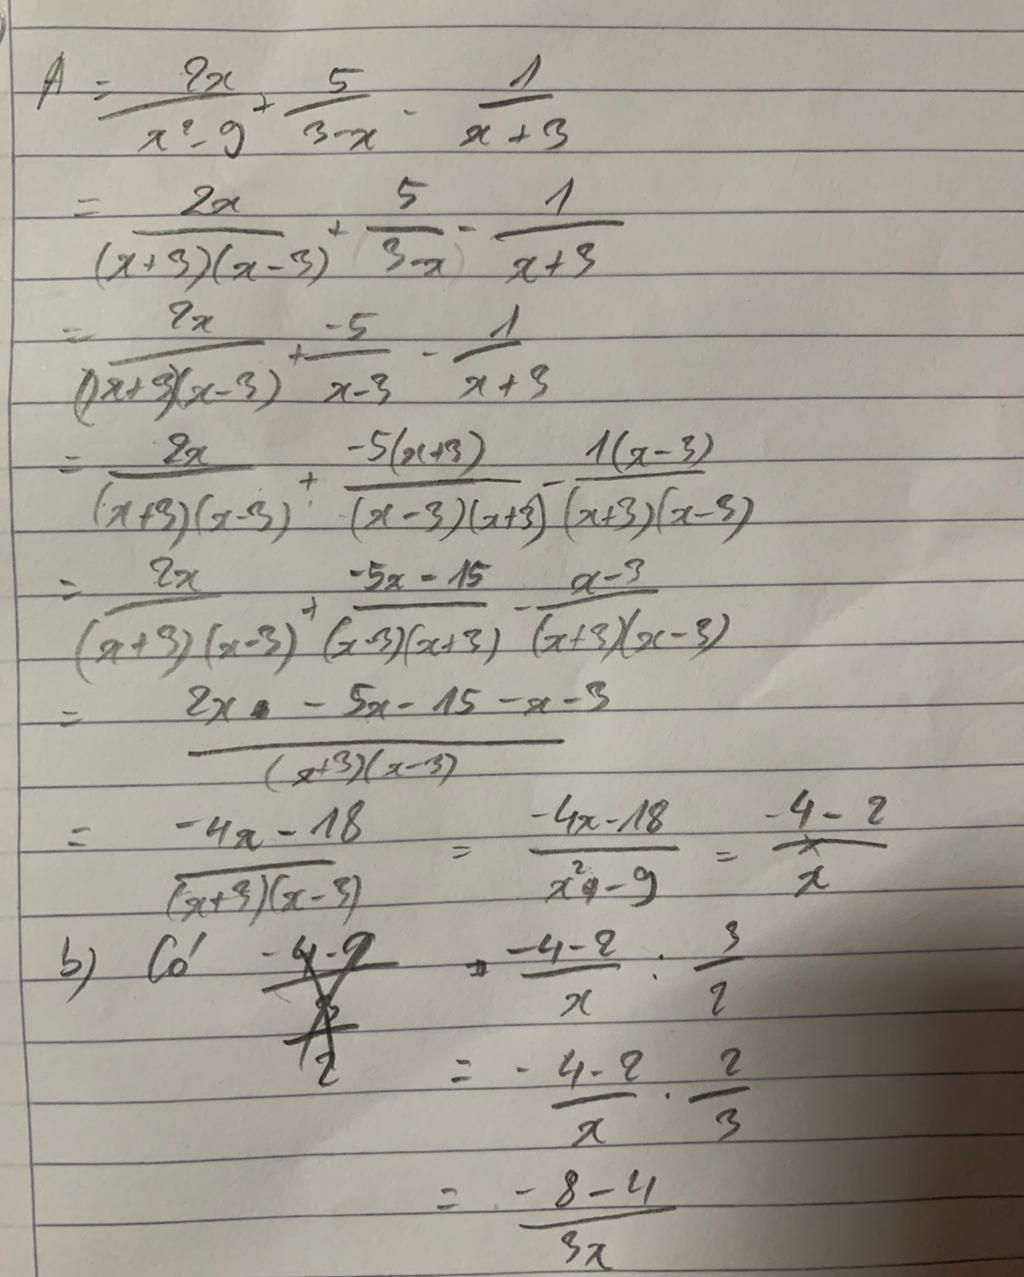 A = 2x/(x² - 9) + 5/(3 - x) - 1/(x + 3)
= 2x/((x+3)(x-3)) + 5/(3-x) - 1/(x+3)
= 2x/((x+3)(x-3)) + -5/(x-3) - 1/(x+3)
= 2x/((x+3)(x-3)) + -5(x+3)/((x-3)(x+3)) - 1(x-3)/((x+3)(x-3))
= 2x/((x+3)(x-3)) + (-5x - 15)/((x-3)(x+3)) - (x-3)/((x+3)(x-3))
= (2x - 5x - 15 - x - 3)/((x+3)(x-3))
= (-4x - 18)/((x+3)(x-3)) = (-4x - 18)/(x² - 9) = (-4 - 2)/x
b) Có (-4-2)/x : 3/2
= (-4-2)/x . 2/3
= (-8-4)/3x